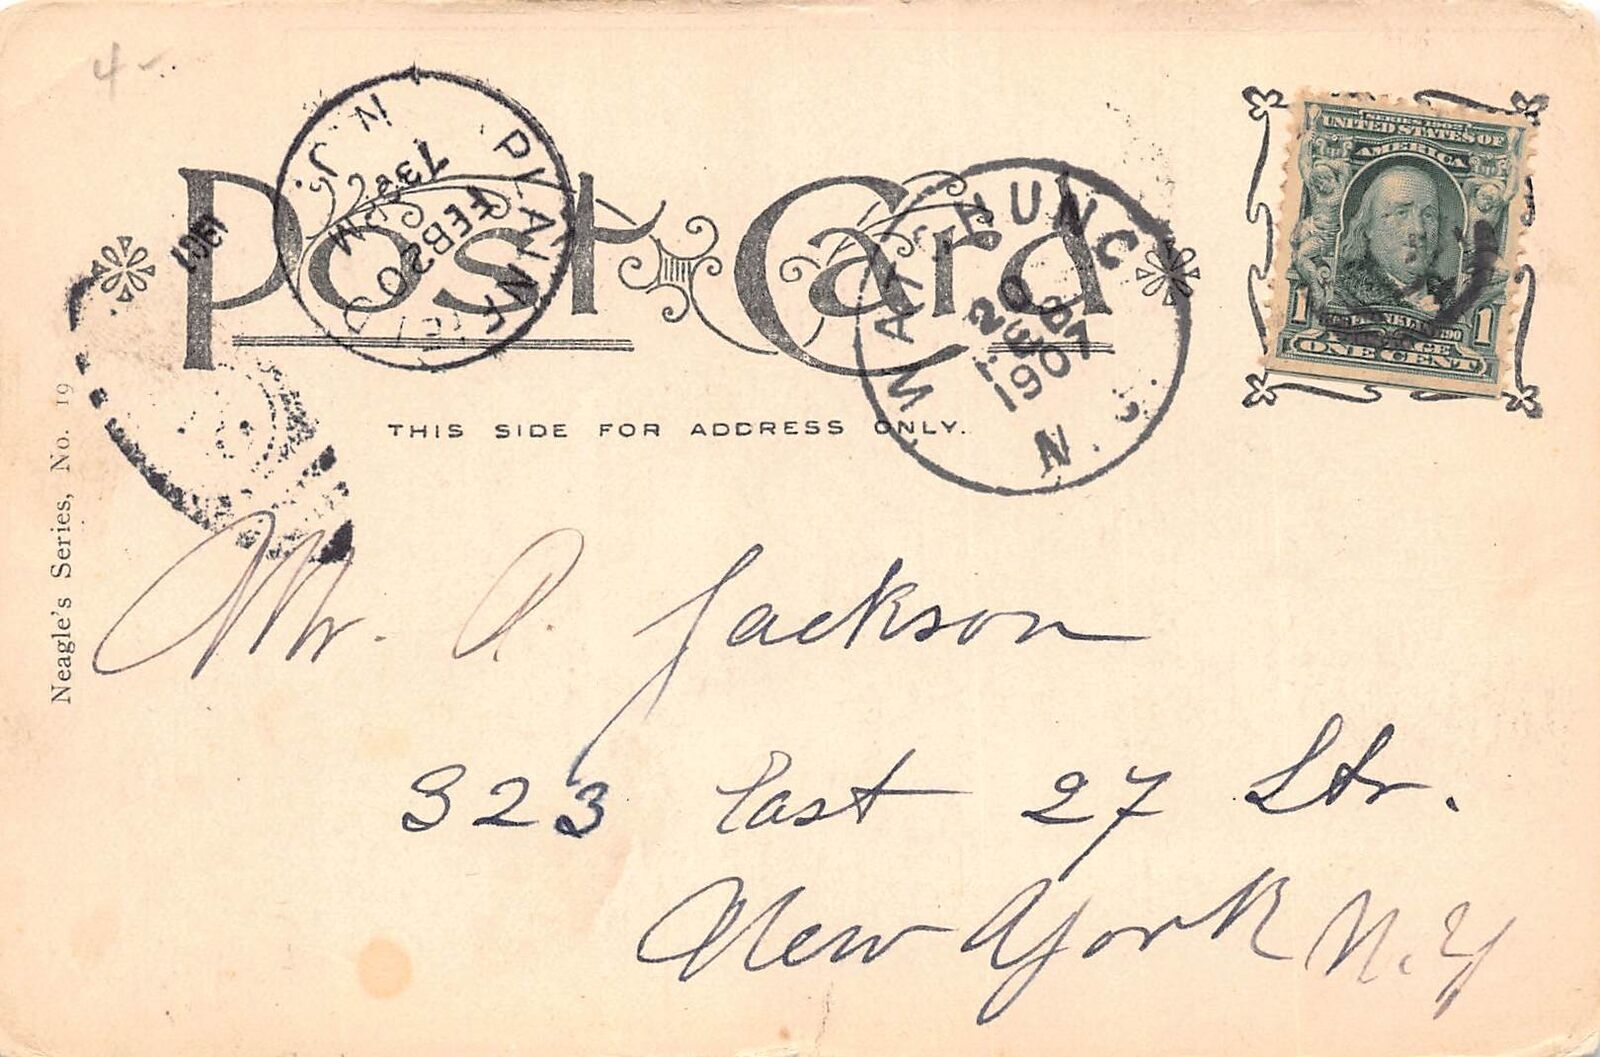 4-
Post Card
THIS SIDE FOR ADDRESS ONLY.
PLAINFIELD N.J.
FEB 20
7 30 PM
1907
WATCHUNG
N.J.
FEB
20
1907
SERIES 1902
UNITED STATES OF
AMERICA
FRANKLIN
1 1
ONE CENT
Neagle's Series, No. 19
Mr. A. Jackson
323 East 27 Str.
New York N.Y